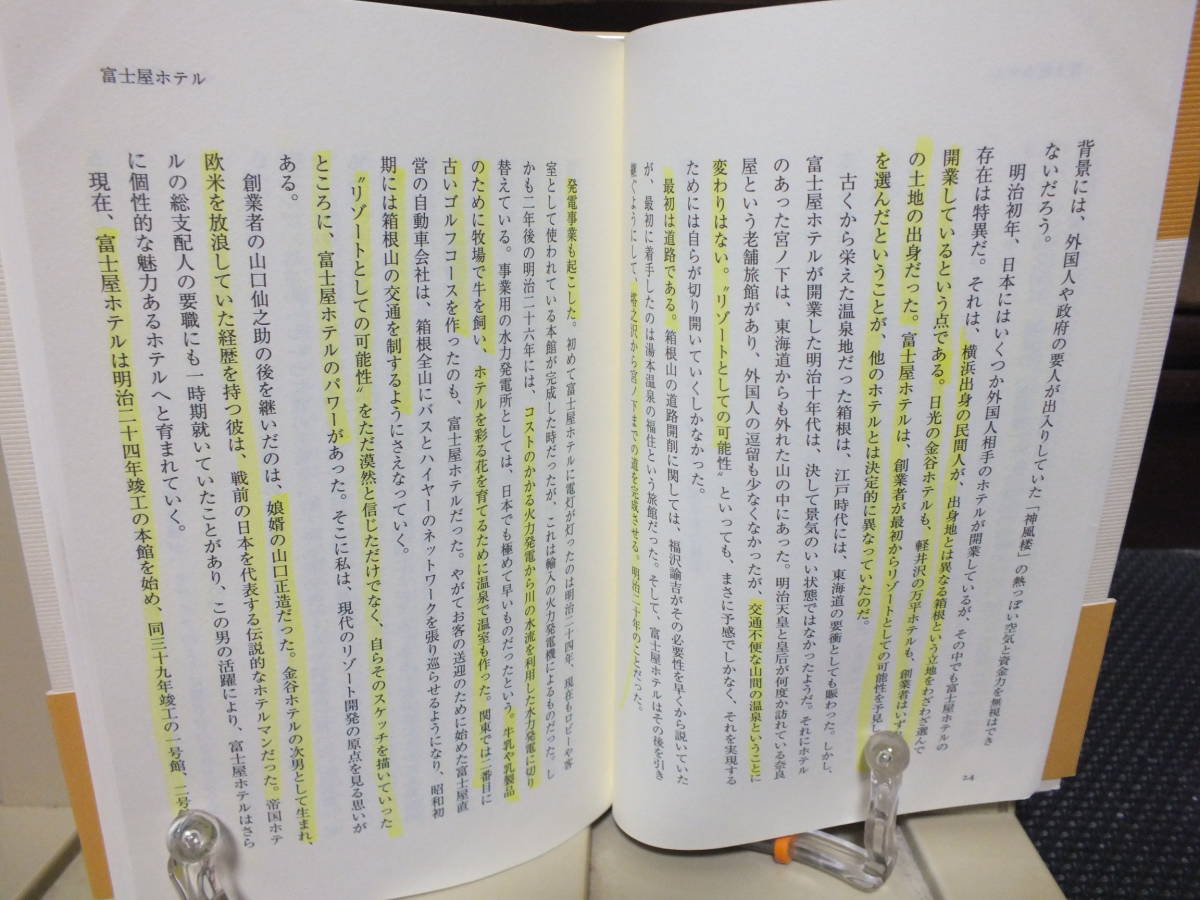 背景には、外国人や政府の要人が出入りしていた「神風楼」の熱っぽい空気と資金力を無視はでき
ないだろう。
明治初年、日本にはいくつか外国人相手のホテルが開業しているが、その中でも富士屋ホテルの
存在は特異だ。それは、横浜出身の民間人が、出身地とは異なる箱根という立地をわざわざ選んで
開業しているという点である。日光の金谷ホテルも、軽井沢の万平ホテルも、創業者はいず
の土地の出身だった。富士屋ホテルは、創業者が最初からリゾートとしての可能性を予見し
を選んだということが、他のホテルとは決定的に異なっていたのだ。
古くから栄えた温泉地だった箱根は、江戸時代には、東海道の要衝としても賑わった。しかし、
富士屋ホテルが開業した明治十年代は、決して景気のいい状態ではなかったようだ。それにホテル
のあった宮ノ下は、東海道からも外れた山の中にあった。明治天皇と皇后が何度か訪れている奈良
屋という老舗旅館があり、外国人の逗留も少なくなかったが、交通不便な山間の温泉ということに
変わりはない。〝リゾートとしての可能性〟といっても、まさに予感でしかなく、それを実現する
ためには自らが切り開いていくしかなかった。
最初は道路である。箱根山の道路開削に関しては、福沢諭吉がその必要性を早くから説いていた
が、最初に着手したのは湯本温泉の福住という旅館だった。そして、富士屋ホテルはその後を引き
継ぐようにして、塔之沢から宮ノ下までの道を完成させる。明治二十年のことだった。
24
富士屋ホテル
発電事業も起こした。初めて富士屋ホテルに電灯が灯ったのは明治二十四年、現在もロビーや客
室として使われている本館が完成した時だったが、これは輸入の火力発電機によるものだった。し
かも二年後の明治二十六年には、コストのかかる火力発電から川の水流を利用した水力発電に切り
替えている。事業用の水力発電所としては、日本でも極めて早いものだったという。牛乳や乳製品
のために牧場で牛を飼い、ホテルを彩る花を育てるために温泉で温室も作った。関東では二番目に
古いゴルフコースを作ったのも、富士屋ホテルだった。やがてお客の送迎のために始めた富士屋直
営の自動車会社は、箱根全山にバスとハイヤーのネットワークを張り巡らせるようになり、昭和初
期には箱根山の交通を制するようにさえなっていく。
〝リゾートとしての可能性〟をただ漠然と信じただけでなく、自らそのスケッチを描いていった
ところに、富士屋ホテルのパワーがあった。そこに私は、現代のリゾート開発の原点を見る思いが
ある。
創業者の山口仙之助の後を継いだのは、娘婿の山口正造だった。金谷ホテルの次男として生まれ、
欧米を放浪していた経歴を持つ彼は、戦前の日本を代表する伝説的なホテルマンだった。帝国ホテ
ルの総支配人の要職にも一時期就いていたことがあり、この男の活躍により、富士屋ホテルはさら
に個性的な魅力あるホテルへと育まれていく。
現在、富士屋ホテルは明治二十四年竣工の本館を始め、同三十九年竣工の一号館、二号